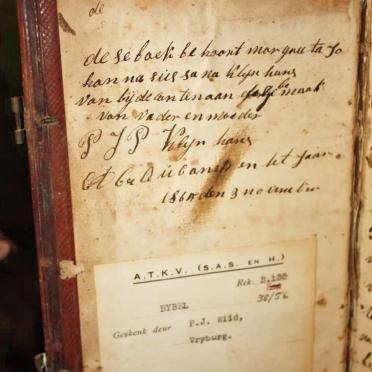 de
de se boek be hoort mar gre ta Jo
han na sus sa na klyn hans
van bij de tantenaan ge maak
van vader en moeder
P J P Klyn hans
en het Jaar
den 3 november
A.T.K.V. (S.A.S. EN H.)
Rek. B.188
38/56
BYBEL
Geskenk deur P.J. Wiid,
Vryburg.